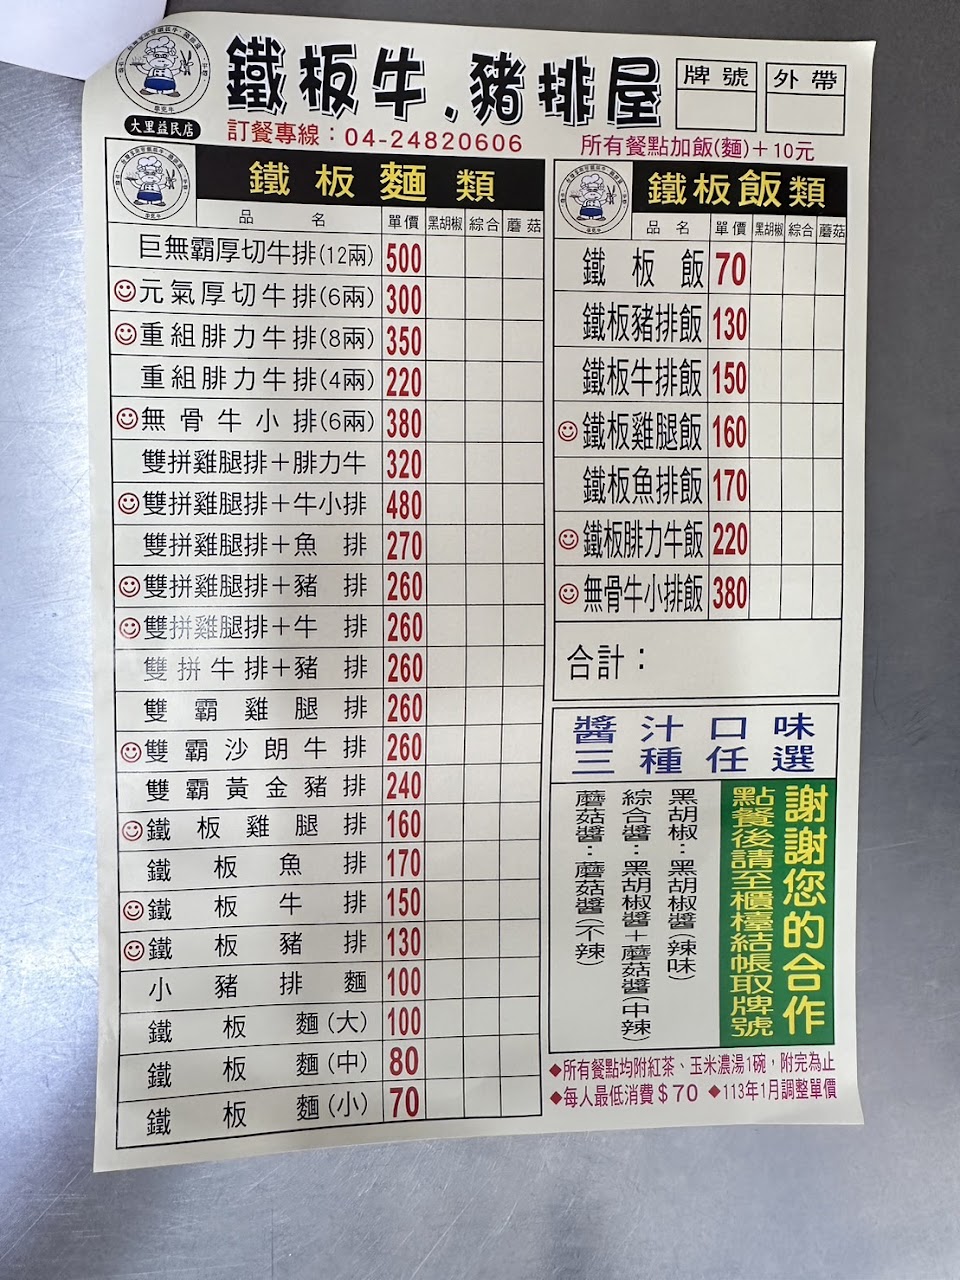 鐵板牛.豬排屋
牌號
外帶
大里益民店
訂餐專線：04-24820606
所有餐點加飯(麵)＋10元
鐵板麵類
品名 單價 黑胡椒 綜合 蘑菇
巨無霸厚切牛排(12兩) 500
元氣厚切牛排(6兩) 300
重組腓力牛排(8兩) 350
重組腓力牛排(4兩) 220
無骨牛小排(6兩) 380
雙拼雞腿排＋腓力牛 320
雙拼雞腿排＋牛小排 480
雙拼雞腿排＋魚排 270
雙拼雞腿排＋豬排 260
雙拼雞腿排＋牛排 260
雙拼牛排＋豬排 260
雙霸雞腿排 260
雙霸沙朗牛排 260
雙霸黃金豬排 240
鐵板雞腿排 160
鐵板魚排 170
鐵板牛排 150
鐵板豬排 130
小豬排麵 100
鐵板麵(大) 100
鐵板麵(中) 80
鐵板麵(小) 70
鐵板飯類
品名 單價 黑胡椒 綜合 蘑菇
鐵板飯 70
鐵板豬排飯 130
鐵板牛排飯 150
鐵板雞腿飯 160
鐵板魚排飯 170
鐵板腓力牛飯 220
無骨牛小排飯 380
合計：
醬汁口味
三種任選
謝謝您的合作
點餐後請至櫃檯結帳取牌號
黑胡椒：黑胡椒醬(辣味)
綜合醬：黑胡椒醬＋蘑菇醬(中辣)
蘑菇醬：蘑菇醬(不辣)
◆所有餐點均附紅茶、玉米濃湯1碗，附完為止
◆每人最低消費＄70 ◆113年1月調整單價